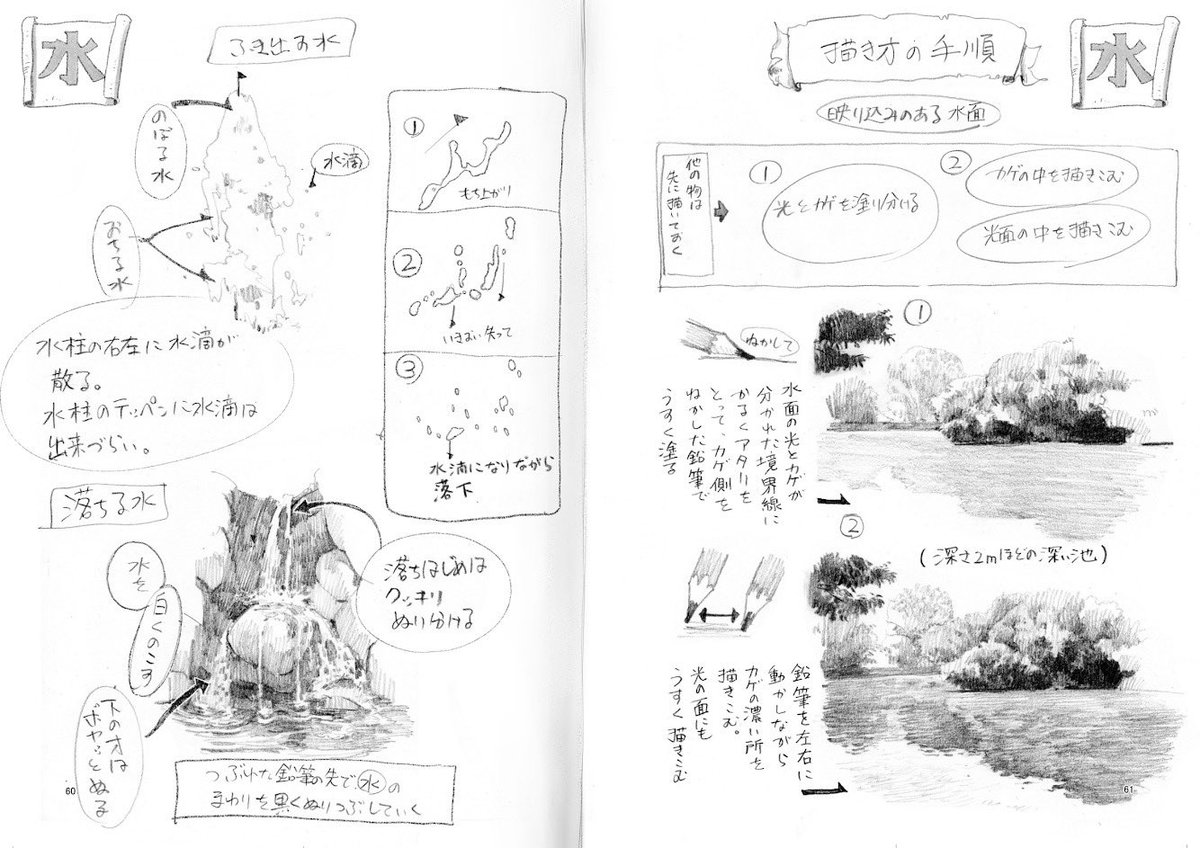 水
ふき出す水
のぼる水
水滴
おちる水
水柱の右左に水滴が
散る。
水柱のテッペンに水滴は
出来づらい。
①
もち上がり
②
いきおい失って
③
水滴になりながら
落下
落ちる水
水を
白くのこす
落ちはじめは
クッキリ
ぬり分ける
下の方は
ボヤッとぬる
つぶれた鉛筆の先で水の
まわりを黒くぬりつぶしていく
60
描き方の手順
水
映り込みのある水面
他の物は
先に描いておく
①
光とカゲを塗り分ける
②
カゲの中を描きこむ
光面の中を描きこむ
①
ねかして
水面の光とカゲが
分かれた境界線に
かるくアタリを
とって、カゲ側を
ねかした鉛筆で
うすく塗る
②
(深さ2mほどの深い池)
鉛筆を左右に
動かしながら
カゲの濃い所を
描きこむ。
光の面にも
うすく描きこむ
61